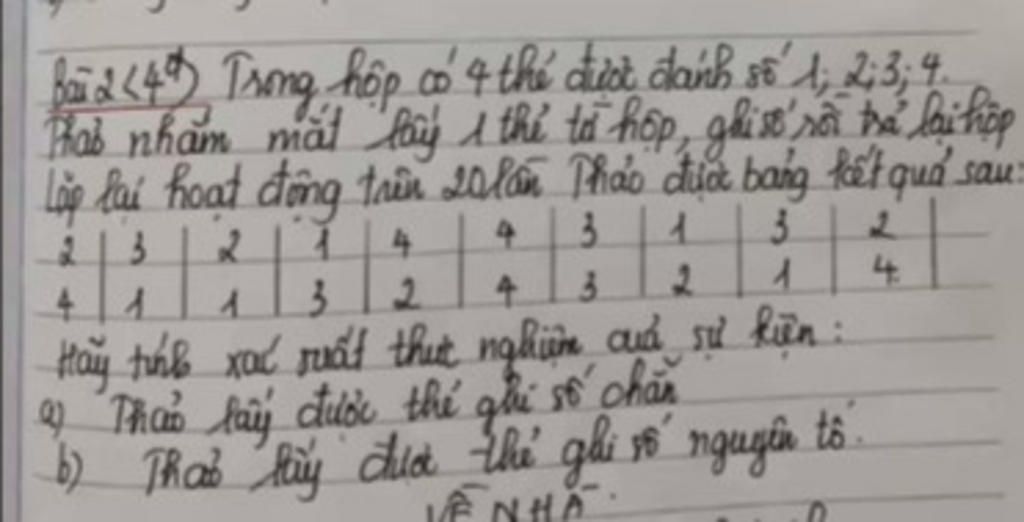 Bài 2 (4đ) Trong hộp có 4 thẻ được đánh số 1; 2; 3; 4.
Thảo nhắm mắt lấy 1 thẻ từ hộp, ghi số rồi trả lại hộp
Lặp lại hoạt động trên 20 lần Thảo được bảng kết quả sau:
2 3 2 1 4 4 3 1 3 2
4 1 1 3 2 4 3 2 1 4
Hãy tính xác suất thực nghiệm quả sự kiện:
a) Thảo lấy được thẻ ghi số chẵn
b) Thảo lấy được thẻ ghi số nguyên tố.
VỀ NHÀ.